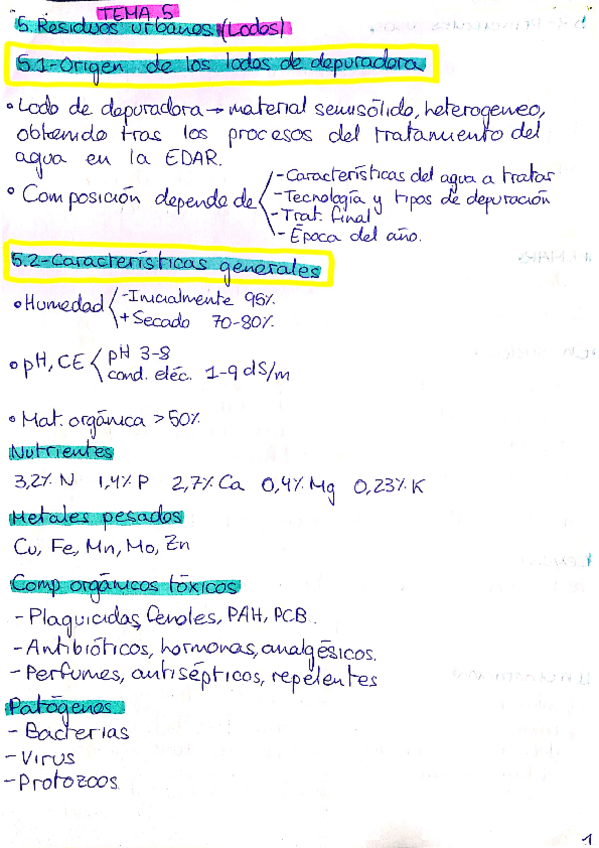 TEMA 5
5. Residuos urbanos (Lodos)
5.1-Origen de los lodos de depuradora
• Lodo de depuradora → material semisólido, heterogeneo,
obtenido tras los procesos del tratamiento del
agua en la EDAR.
• Composición depende de
- Características del agua a tratar
- Tecnología y tipos de depuración
- Trat. final
- Época del año.
5.2-Características generales
• Humedad
- Inicialmente 95%
+ Secado 70-80%
• pH, CE
pH 3-8
cond. eléc. 1-9 dS/m
• Mat. orgánica > 50%
Nutrientes
3,2% N 1,4% P 2,7% Ca 0,4% Mg 0,23% K
Metales pesados
Cu, Fe, Mn, Mo, Zn
Comp orgánicos tóxicos
- Plaguicidas, Fenoles, PAH, PCB.
- Antibióticos, hormonas, analgésicos.
- Perfumes, antisépticos, repelentes
Patógenos
- Bacterias
- Virus
- Protozoos
1